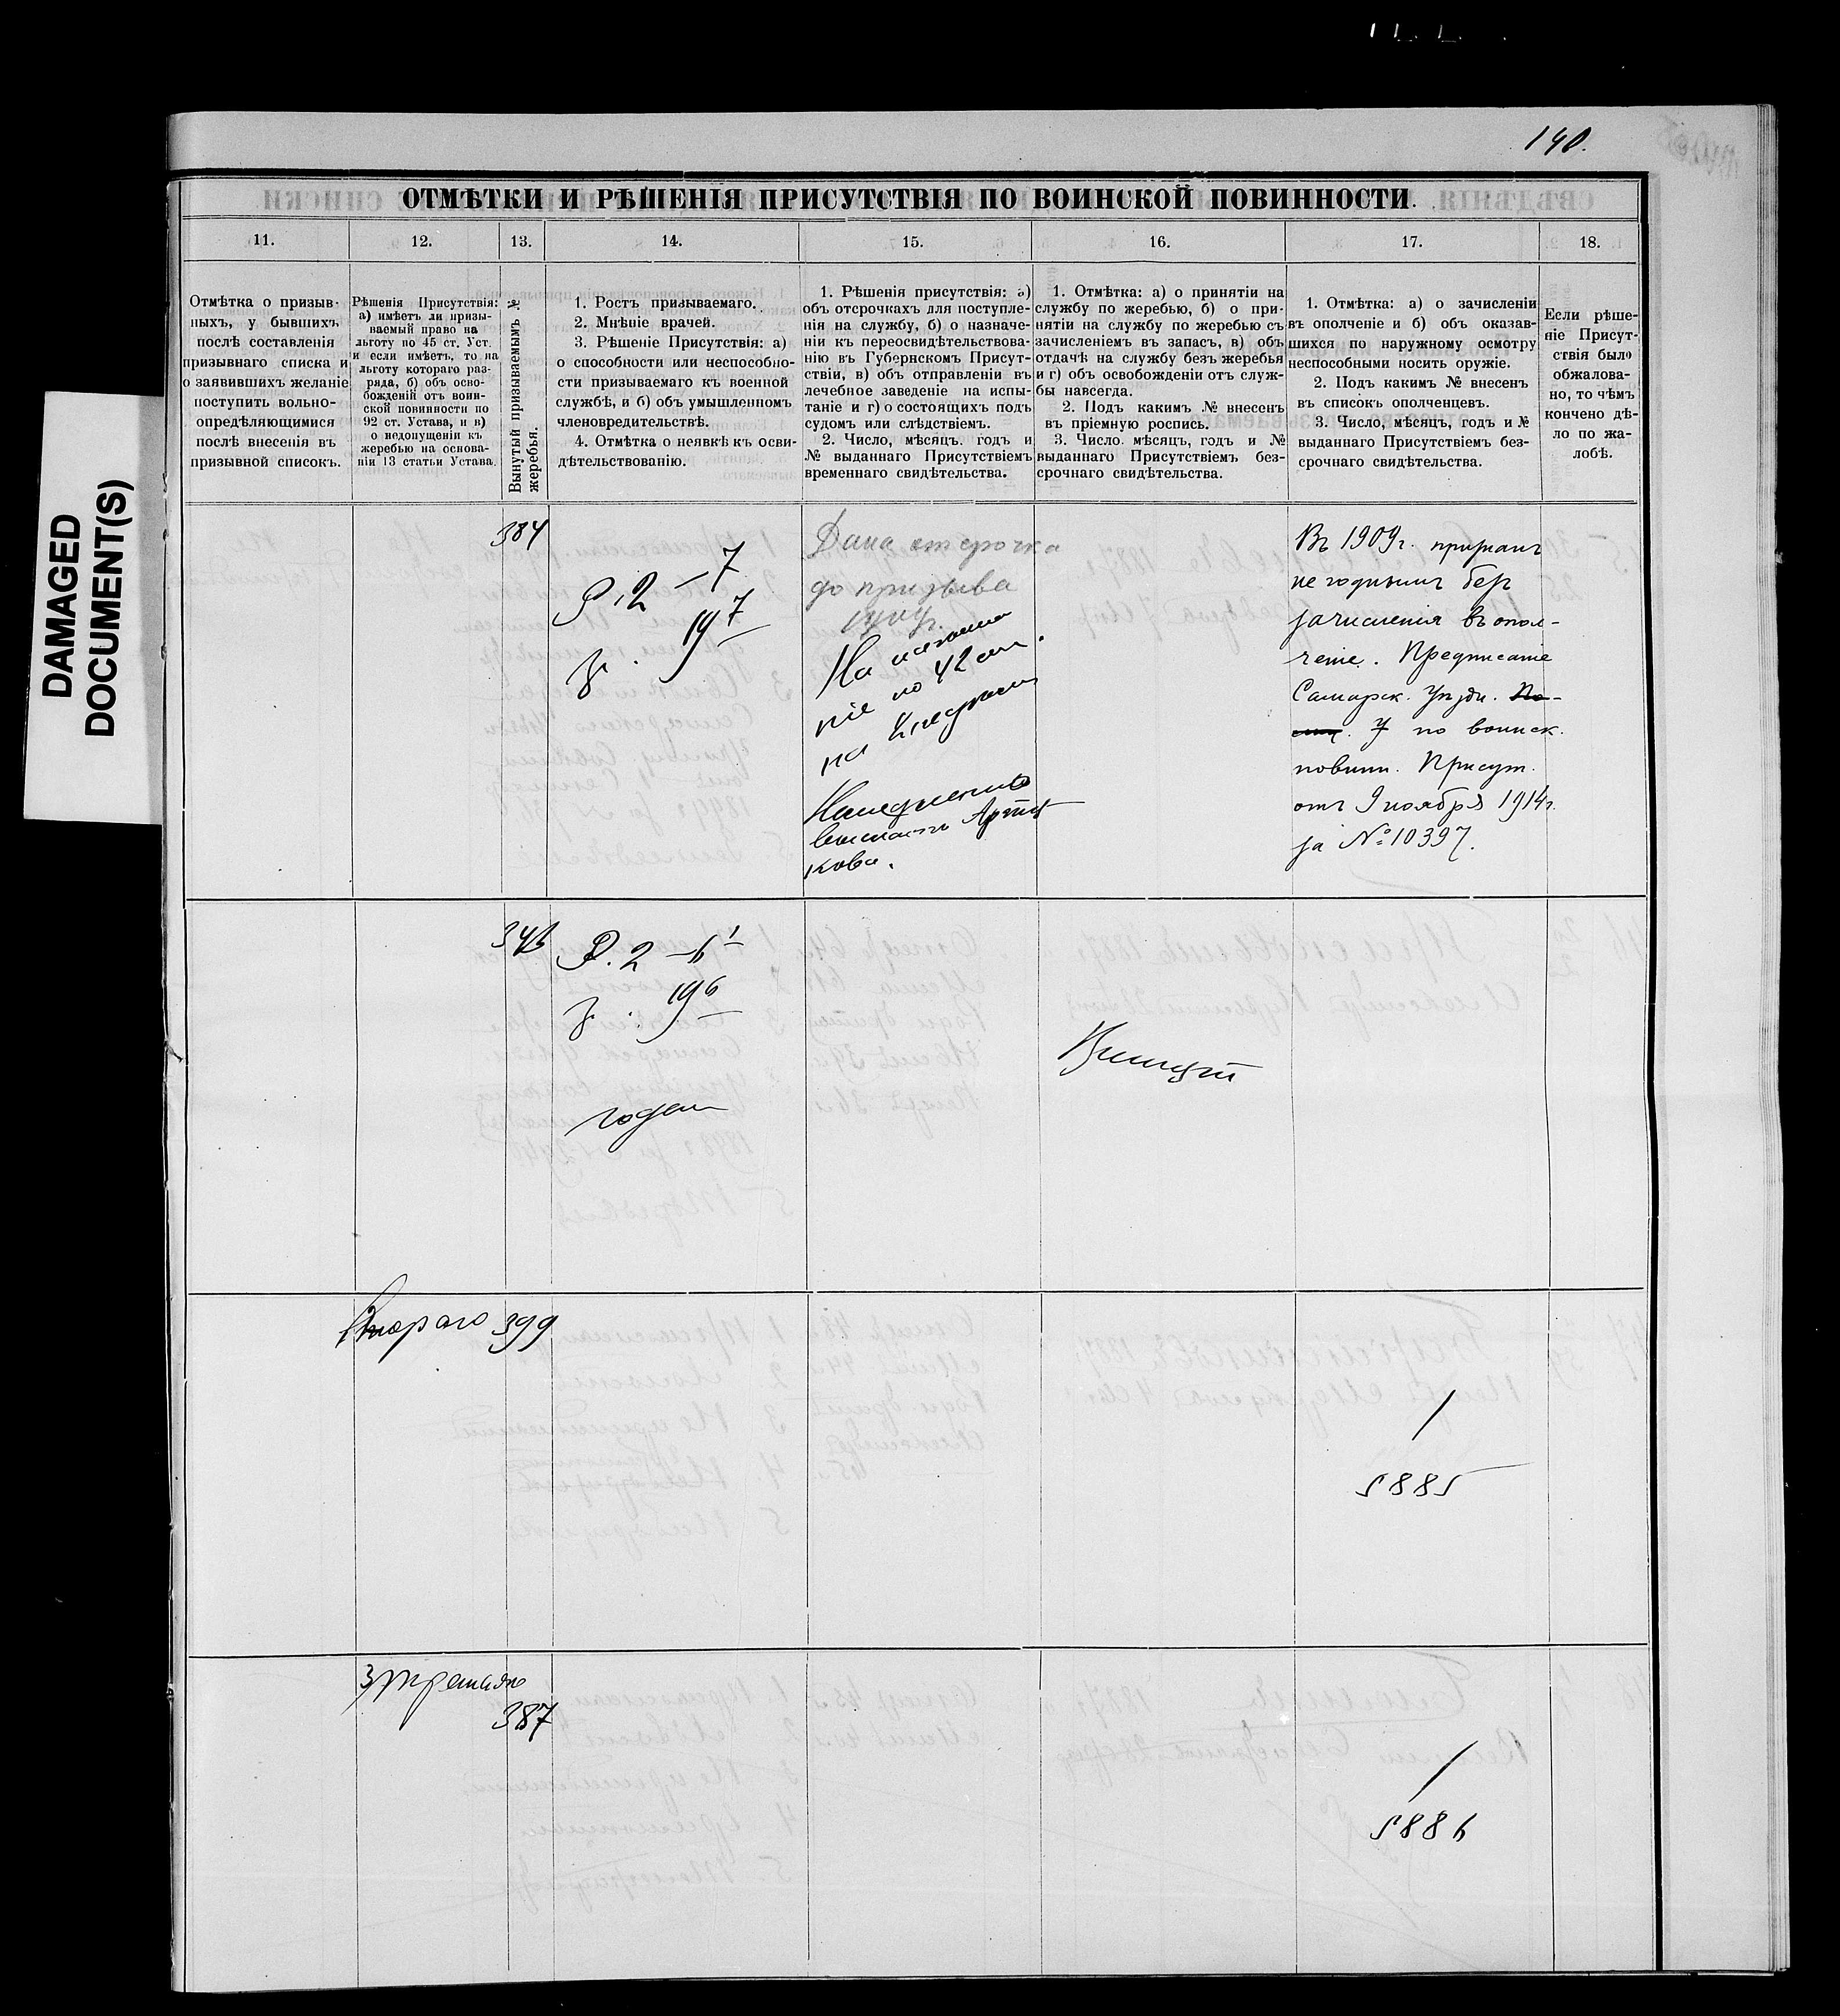 140.
DAMAGED
DOCUMENT(S)
ОТМѢТКИ И РѢШЕНІЯ ПРИСУТСТВІЯ ПО ВОИНСКОЙ ПОВИННОСТИ.
11.
12.
13.
14.
15.
16.
17.
18.
Отмѣтка о призыв-
ныхъ, у бывшихъ
послѣ составленія
призывнаго списка и
о заявившихъ желаніе
поступить вольно-
опредѣляющимися
послѣ внесенія въ
призывной списокъ.
Рѣшенія Присутствія:
а) имѣетъ ли призы-
ваемый право на
льготу по 45 ст. Уст.
и если имѣетъ, то на
льготу котораго раз-
ряда, б) объ осво-
божденій отъ воин-
ской повинности по
92 ст. Устава, и в)
о недопущеніи къ
жеребью на основа-
ніи 13 статьи Устава.
Вынутый призываемымъ №
жеребья.
1. Ростъ призываемаго.
2. Мнѣніе врачей.
3. Рѣшеніе Присутствія: а)
о способности или неспособно-
сти призываемаго къ военной
службѣ, и б) объ умышленномъ
членовредительствѣ.
4. Отмѣтка о неявкѣ къ осви-
дѣтельствованію.
1. Рѣшенія присутствія: а)
объ отсрочкахъ для поступле-
нія на службу, б) о назначе-
ніи къ переосвидѣтельствова-
нію въ Губернскомъ Присут-
ствіи, в) объ отправленіи въ
лечебное заведеніе на испы-
таніе и г) о состоящихъ подъ
судомъ или слѣдствіемъ.
2. Число, мѣсяцъ. годъ и
№ выданнаго Присутствіемъ
временнаго свидѣтельства.
1. Отмѣтка: а) о принятіи на
службу по жеребью, б) о при-
нятіи на службу по жеребью съ
зачисленіемъ въ запасъ, в) объ
отдачѣ на службу безъ жеребья
и г) объ освобожденіи отъ служ-
бы навсегда.
2. Подъ какимъ № внесенъ
въ пріемную роспись.
3. Число мѣсяцъ, годъ и №
выданнаго Присутствіемъ без-
срочнаго свидѣтельства.
1. Отмѣтка: а) о зачисленіи
въ ополченіе и б) объ оказав-
шихся по наружному осмотру
неспособными носить оружіе.
2. Подъ какимъ № внесенъ
въ списокъ ополченцевъ.
3. Число, мѣсяцъ, годъ и №
выданнаго Присутствіемъ без-
срочнаго свидѣтельства.
Если рѣше-
ніе Присут-
ствія было
обжалова-
но, то чѣмъ
кончено дѣ-
ло по жа-
лобѣ.
384
Р. 2 – 7
19 7
Дана отсрочка
до призыва
1909г.
На
по 42 ст.
на
Въ 1909г. признанъ
негоднымъ безъ
зачисленія въ опол-
ченіе. Предписаніе
Самарск. Уѣздн.
по воинск.
повинн. Присут.
отъ 9 ноября 1914г.
за № 10397.
343
Р. 2 – 6 1
19 6
годен
Принят
Втораго 399
1
5885
387
1
5886